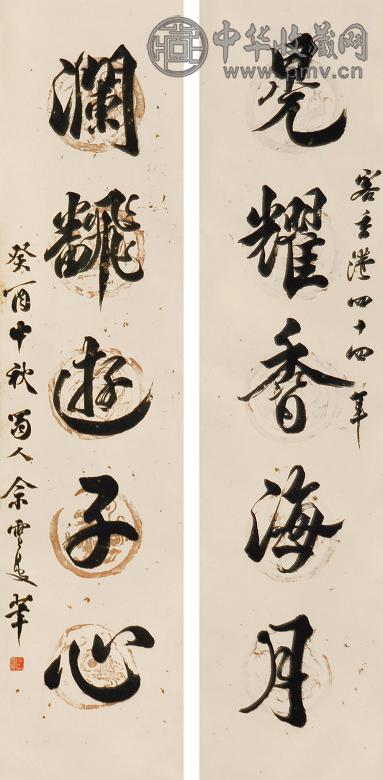 中华收藏网
www.pmv.cn
晃耀香海月
客香港四十四年
瀾飜遊子心
癸酉中秋蜀人佘雪曼筆